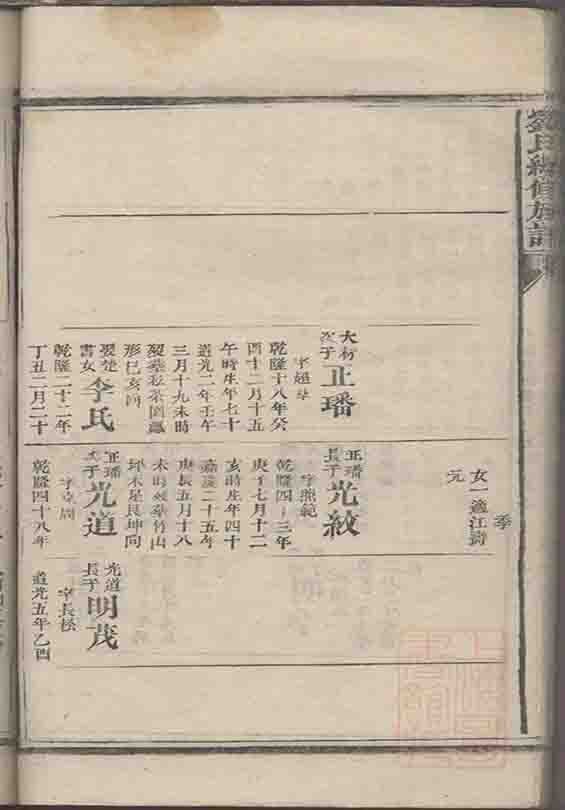 氏續修族譜
大材
次子
正璠
字超
乾隆十八年癸
酉十二月十五
午時生年七十
道光二年壬午
三月十九未時
形巳亥向
娶楚
書女
李氏
乾隆二十二年
丁丑二月二十
季
女一適江
元
正璠
長子
光紋
字熙範
乾隆四十三年
七月十二
亥時生年四十
嘉慶二十五年
庚辰五月十八
未時歿葬竹山
艮坤向
正璠
次子
光道
字克周
乾隆四十八年
光道
長子
明茂
字長松
道光五年乙酉